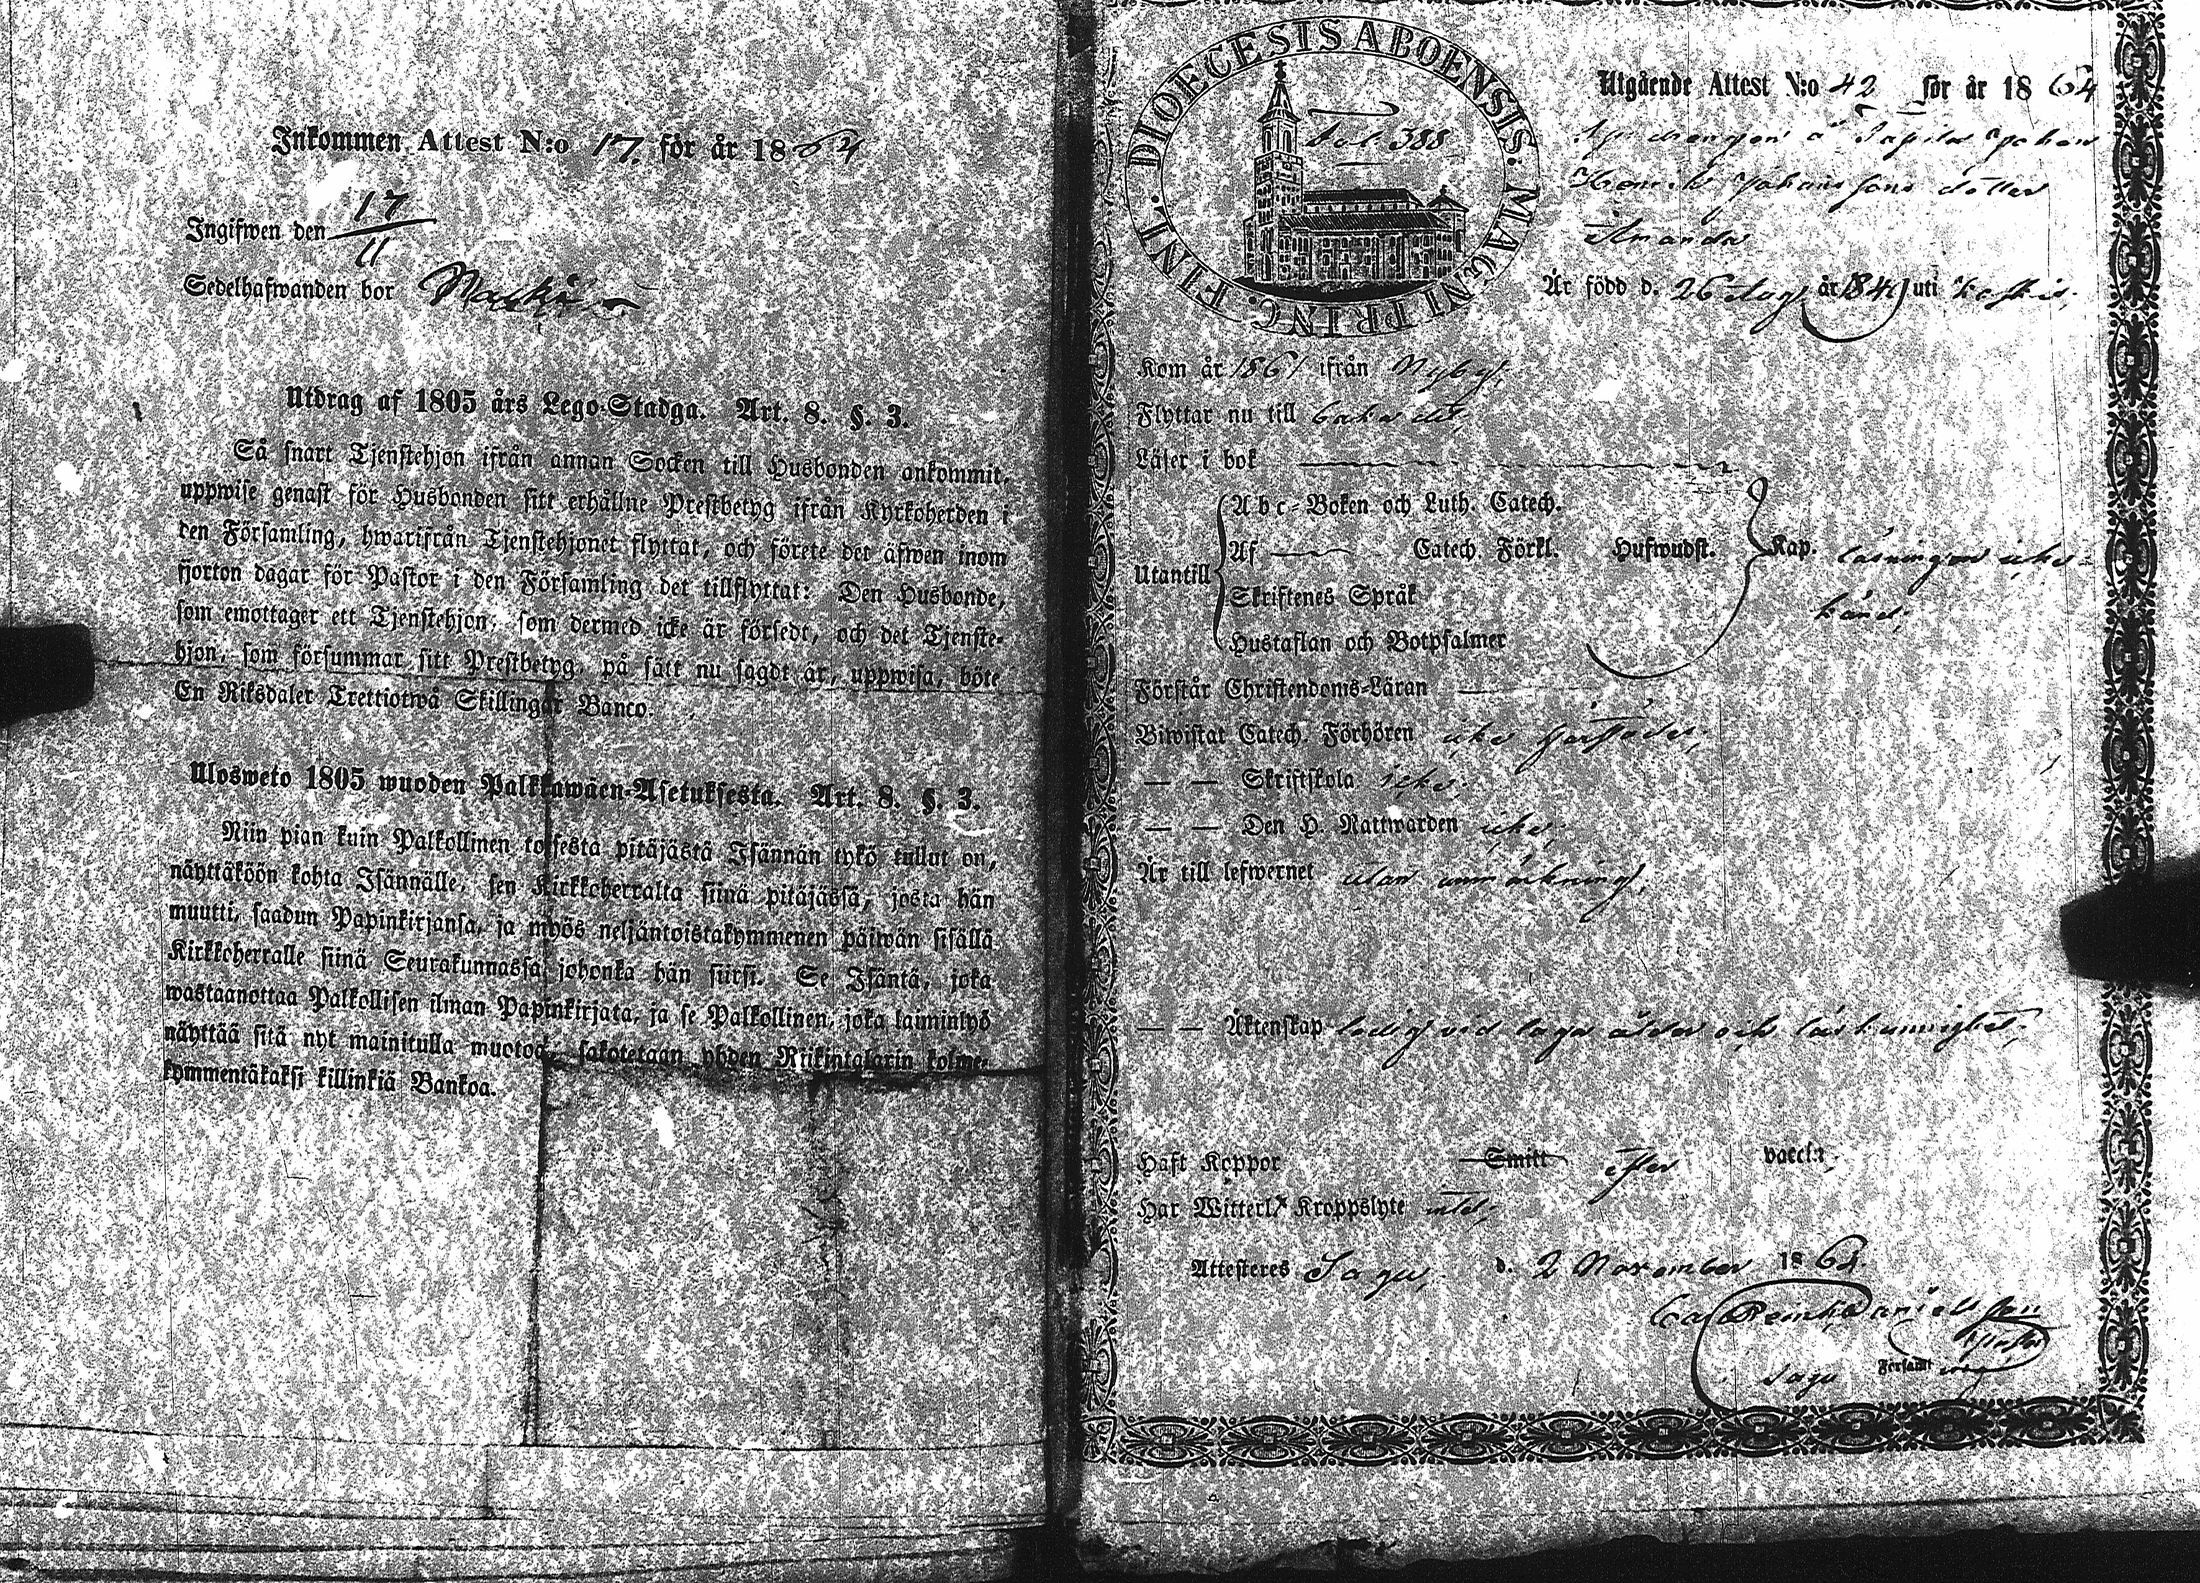 Inkommen Attest N:o 17. för år 1864
Ingifwen den 17/11
Sedelhafwanden bor
Utdrag af 1805 års Lego-Stadga. Art. 8. §. 3.
Så snart Tjenstehjon ifrån annan Socken till Husbonden ankommit,
uppwise genast för Husbonden sitt erhållne Prestbetyg ifrån Kyrkoherden i
den Församling, hwarifrån Tjenstehjonet flyttat, och förete det äfwen inom
fjorton dagar för Pastor i den Församling det tillflyttat: Den Husbonde,
som emottager ett Tjenstehjon, som dermed icke är försedt, och det Tjenste-
hjon, som försummar sitt Prestbetyg, på sätt nu sagdt är, uppwisa, böte
En Riksdaler Trettiotwå Skillingar Banco.
Ulosweto 1805 wuoden Palkkawäen-Asetuksesta. Art. 8. §. 3.
Niin pian kuin Palkollinen toisesta pitäjästä Isännän tykö tullut on,
näyttäköön kohta Isännälle, sen Kirkkoherralta siinä pitäjässä, josta hän
muutti, saadun Papinkirjansa, ja myös neljäntoistakymmenen päiwän sisällä
Kirkkoherralle siinä Seurakunnassa johonka hän siirsi. Se Isäntä, joka
wastaanottaa Palkollisen ilman Papinkirjata, ja se Palkollinen, joka laiminlyö
näyttää sitä nyt mainitulla muotoa, sakotetaan yhden Riikintalarin kolme-
kymmentäkaksi killinkiä Bankoa.
DIOECESIS ABOENSIS. MAGNI PRINC. FINL.
fol 388
Utgående Attest N:o 42 för år 1864
Johan
Henrik Johanssons dotter
Amanda
Är född d. 26 Aug. år 1849 uti
Kom år 1861 ifrån Nyby,
Flyttar nu till
Läser i bok
Utantill
Abc-Boken och Luth. Catech.
Af Catech. Förkl. Hufwudst. Kap. läsningen icke
känd,
Skriftenes Språk
Hustaflan och Botpsalmer
Förstår Christendoms-Läran
Biwistat Catech. Förhören icke
— — Skriftskola icke
— — Den H. Nattwarden icke,
Är till lefwernet utan anmärkning,
— — Äktenskap ledig vid laga ålder och läskunnighet.
Haft Koppor Smitt efter vaccin,
Har Witterl. Kroppslyte intet,
Attesteres Sagu, d. 2 November 1864.
Danielsson
Sagu Församl